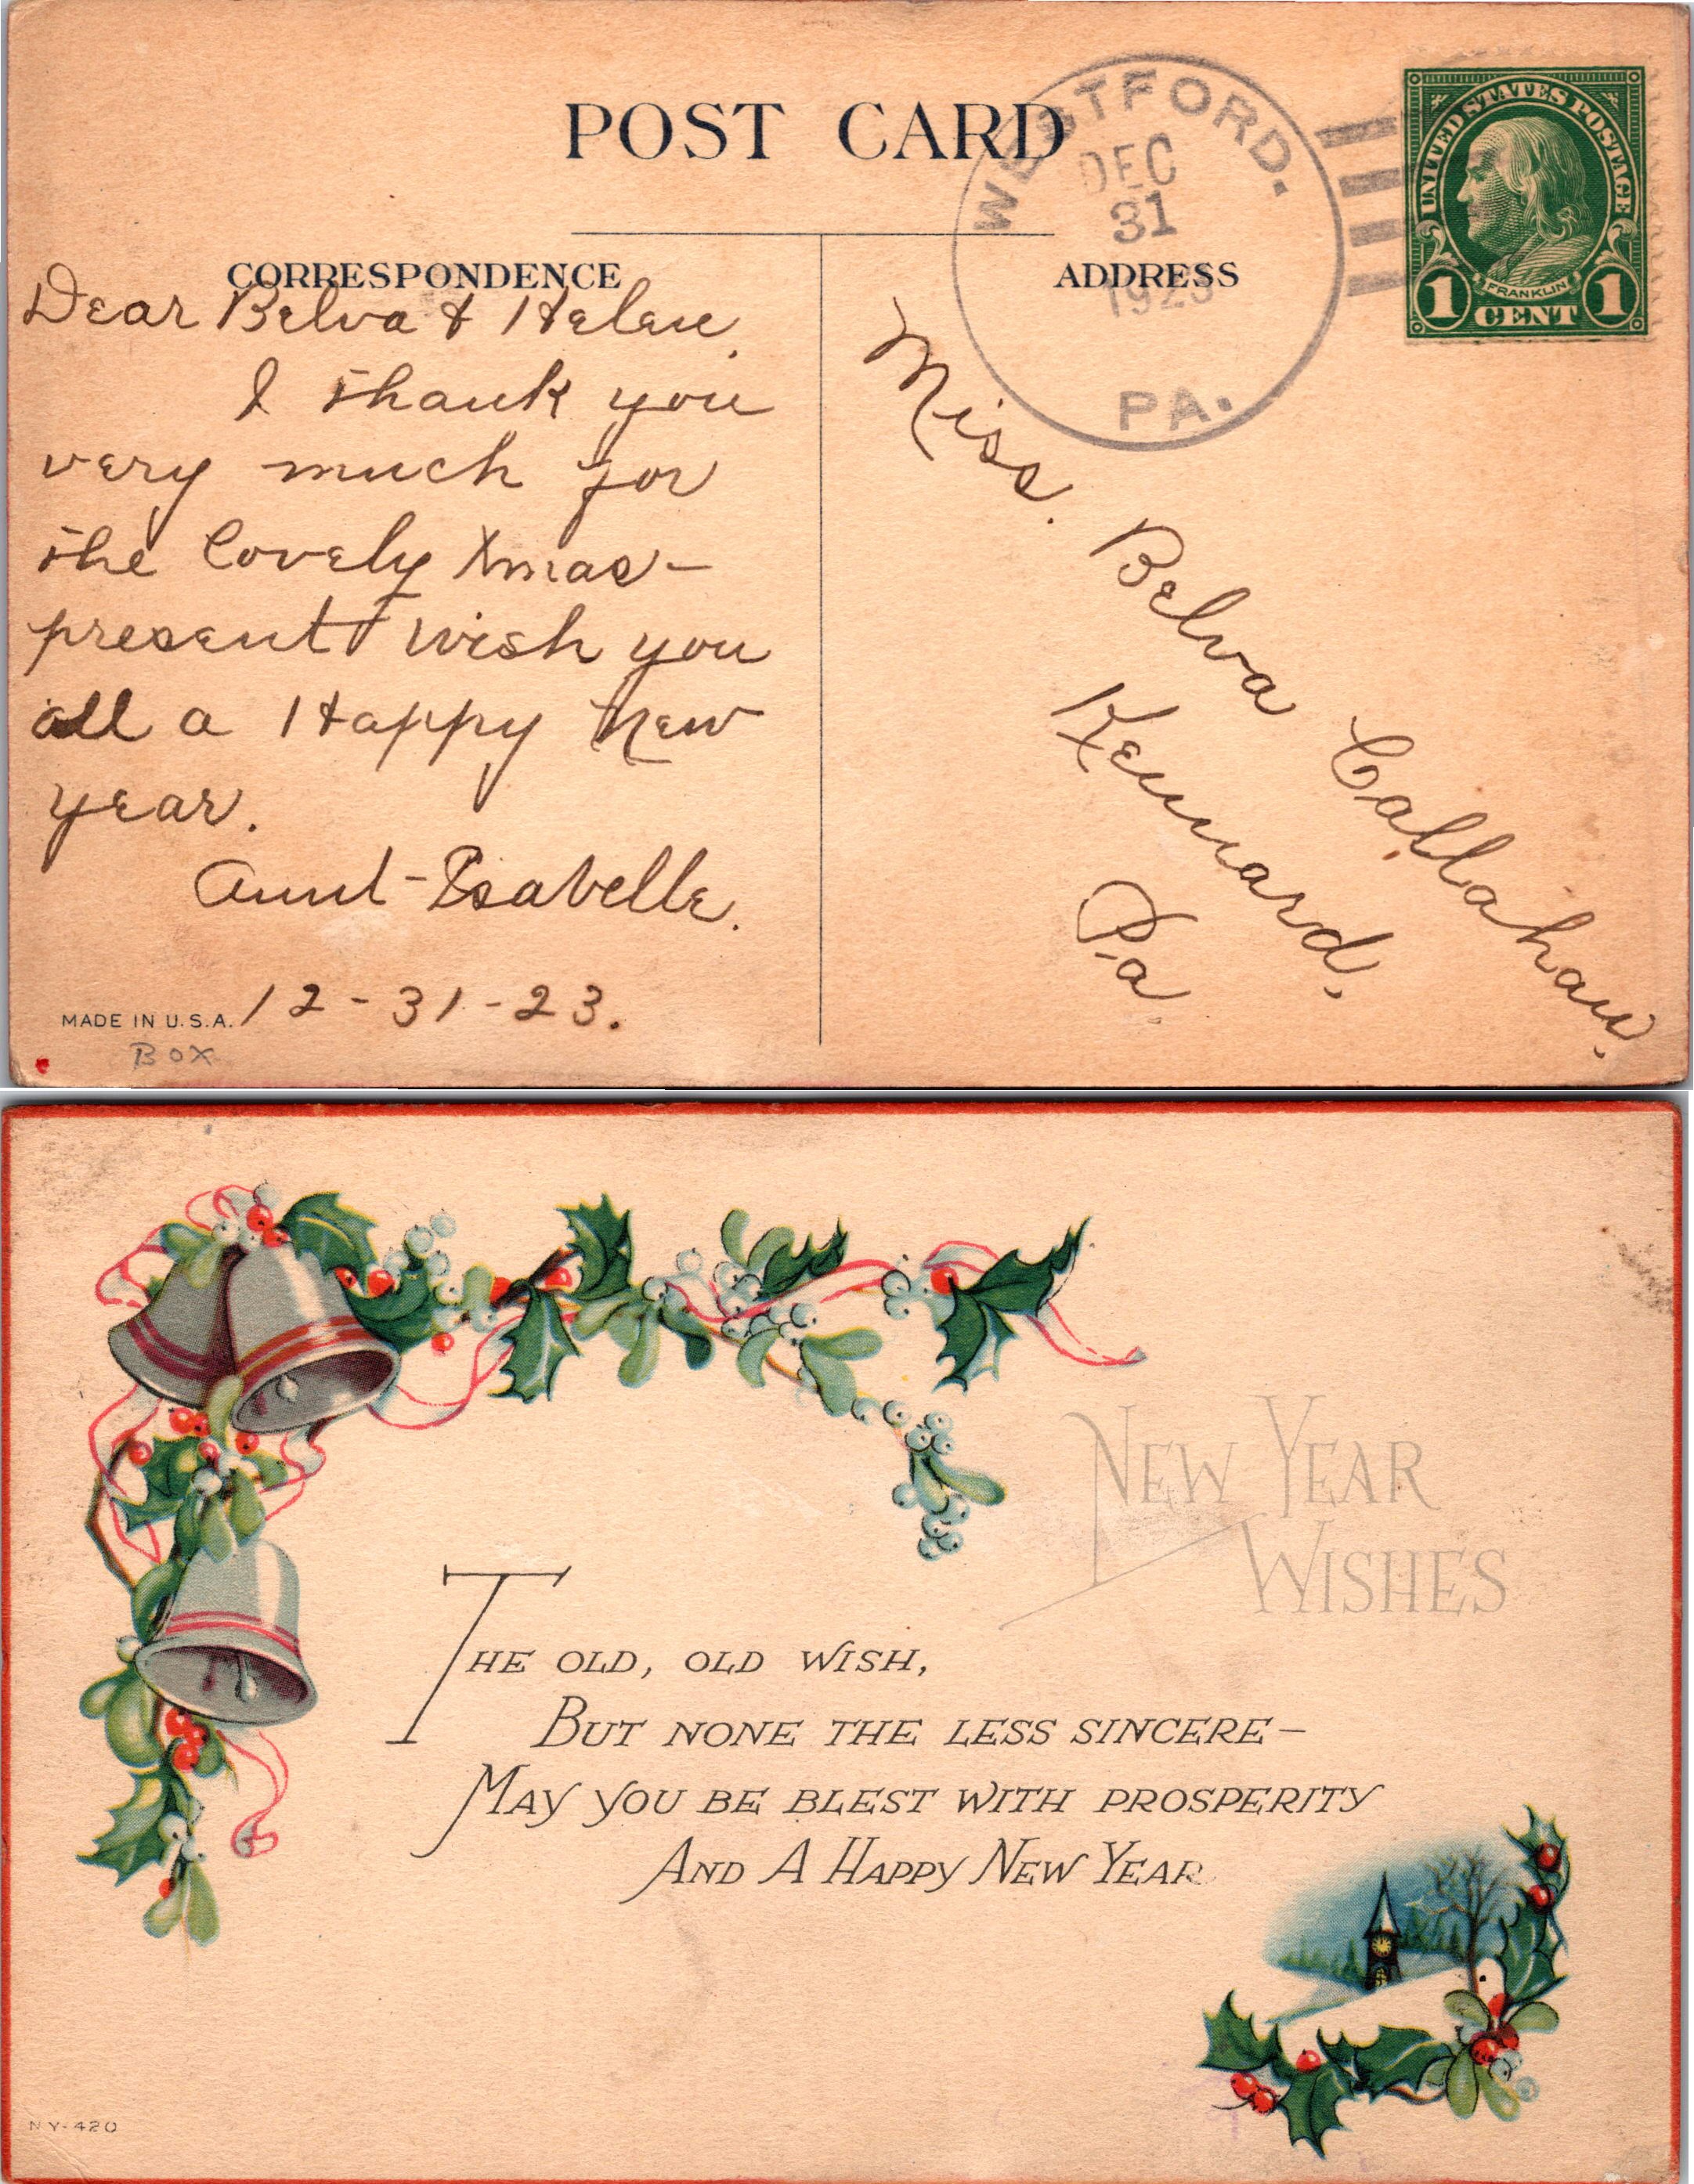 POST CARD
WESTFORD.
DEC
31
1923
PA.
UNITED STATES POSTAGE
FRANKLIN
1 CENT 1
CORRESPONDENCE
ADDRESS
Dear Belva & Helen.
I thank you
very much for
the lovely Xmas-
present & wish you
all a Happy New
year.
Aunt-Isabelle.
12-31-23.
MADE IN U.S.A.
BOX
Miss. Belva Callahan.
Kennard,
Pa.
NEW YEAR
WISHES
THE OLD, OLD WISH,
BUT NONE THE LESS SINCERE—
MAY YOU BE BLEST WITH PROSPERITY
AND A HAPPY NEW YEAR
NY-420